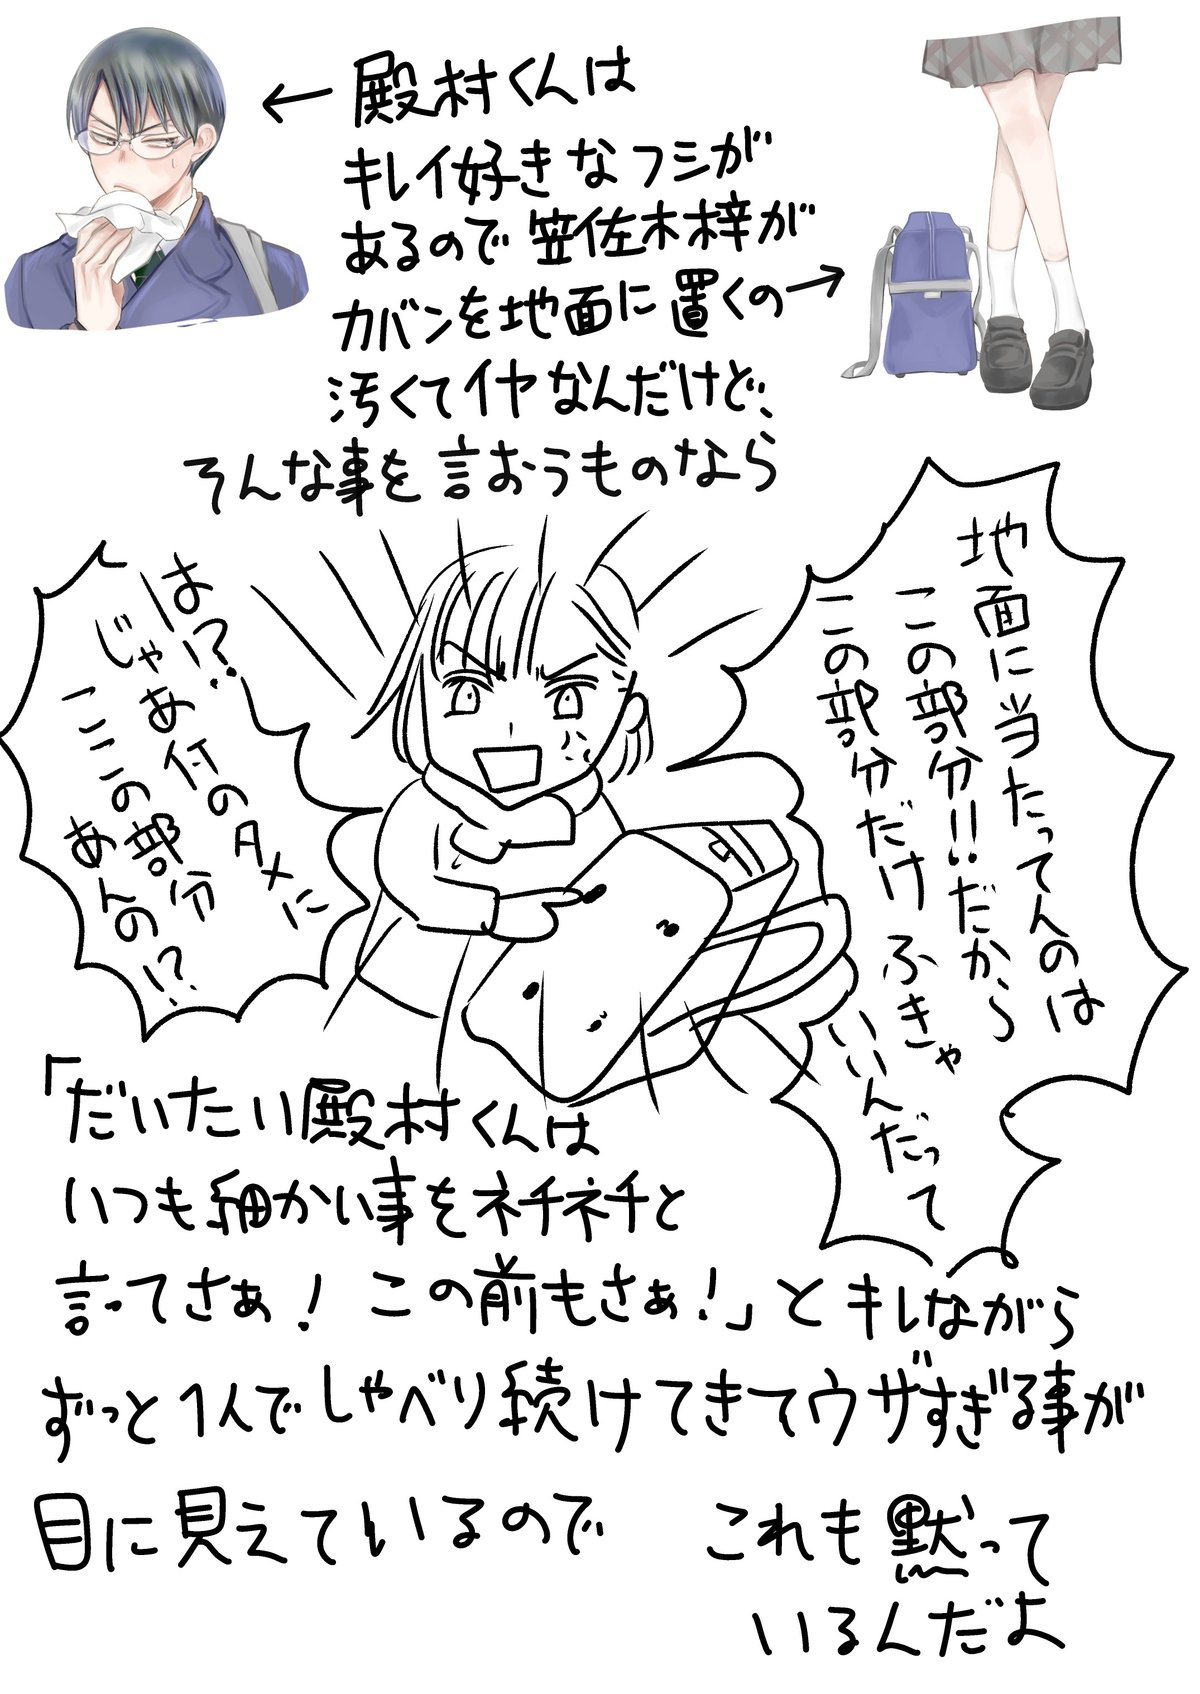 殿村くんは
キレイ好きなフシが
あるので笠佐木梓が
カバンを地面に置くの
汚くてイヤなんだけど、
そんな事を言おうものなら
地面に当たってんのは
この部分!!だから
この部分だけふきゃ
いいんだって
は!?
じゃあ何のタメに
ここの部分
あんの!?
「だいたい殿村くんは
いつも細かい事をネチネチと
言ってさぁ!この前もさぁ!」とキレながら
ずっと1人でしゃべり続けてきてウザすぎる事が
目に見えているので
これも黙って
いるんだよ